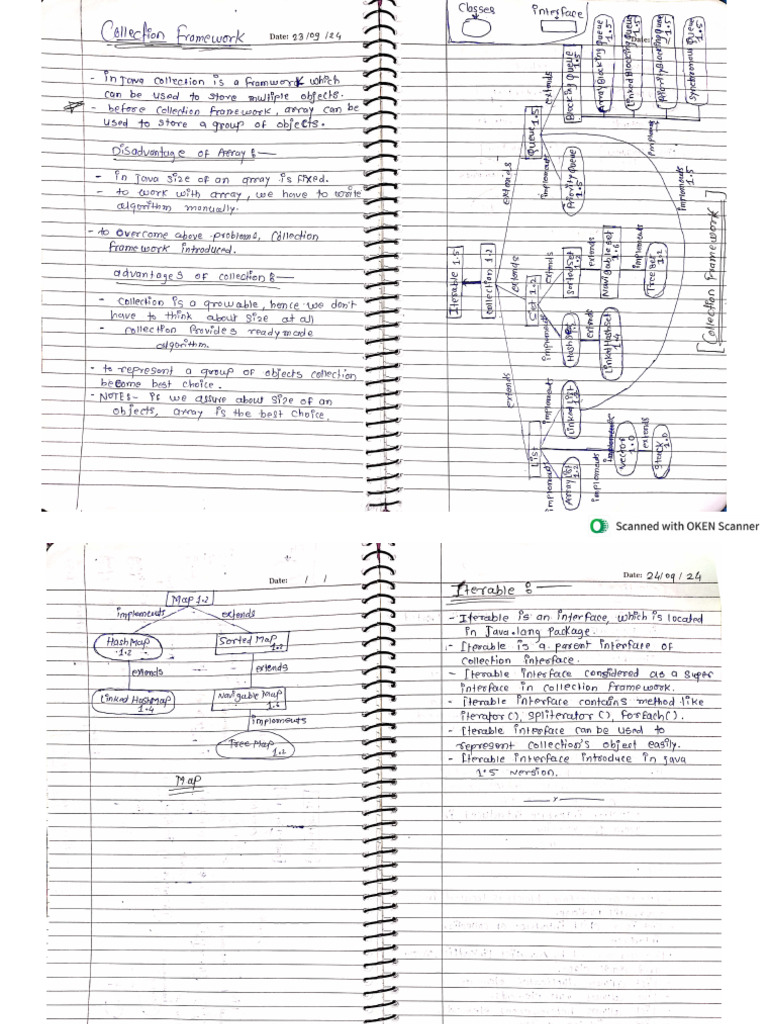 Collection Framework
Date: 23/09/24
- in Java collection is a framwork which
can be used to store multiple objects.
- before collection framework, array can be
used to store a group of objects.
Disadvantage of Array :-
- in Java size of an array is fixed.
- to work with array, we have to write
algorithm manually.
- to overcome above problems, collection
framework introduced.
advantages of collection :-
- collection is a growable, hence we don't
have to think about size at all
- collection Provides readymade
algorithm.
- to represent a group of objects collection
become best choice.
- NOTES - if we assure about size of an
objects, array is the best choice.
Classes
interface
[Collection framework]
Iterable 1.5
Collection 1.2
extends
extends
extends
Queue 1.5
extends
implements
Blocking Queue 1.5
PriorityQueue 1.5
implements
ArrayBlockingQueue 1.5
LinkedBlockingQueue 1.5
PriorityBlockingQueue 1.5
Synchronous Queue 1.5
implements 1.5
Set 1.2
extends
implements
SortedSet 1.2
extends
NavigableSet 1.6
implements
TreeSet 1.2
HashSet 1.2
extends
LinkedHashSet 1.4
List
implements
implements
implements
LinkedList 1.2
ArrayList 1.2
Vector 1.0
extends
Stack 1.0
Scanned with OKEN Scanner
Date: / /
Map 1.2
implements
extends
HashMap
1.2
Sorted Map
1.2
extends
extends
Linked HashMap
1.4
Navigable Map
1.6
implements
Tree Map
1.2
Map
Date: 24/09/24
Iterable :-
- Iterable is an interface, which is located
in Java.lang Package.
- Iterable is a parent interface of
collection interface.
- Iterable interface considered as a super
interface in collection framework.
- Iterable interface contains method like
iterator(), spliterator(), forEach().
- Iterable interface can be used to
represent collection's object easily.
- Iterable interface introduce in java
1.5 version.